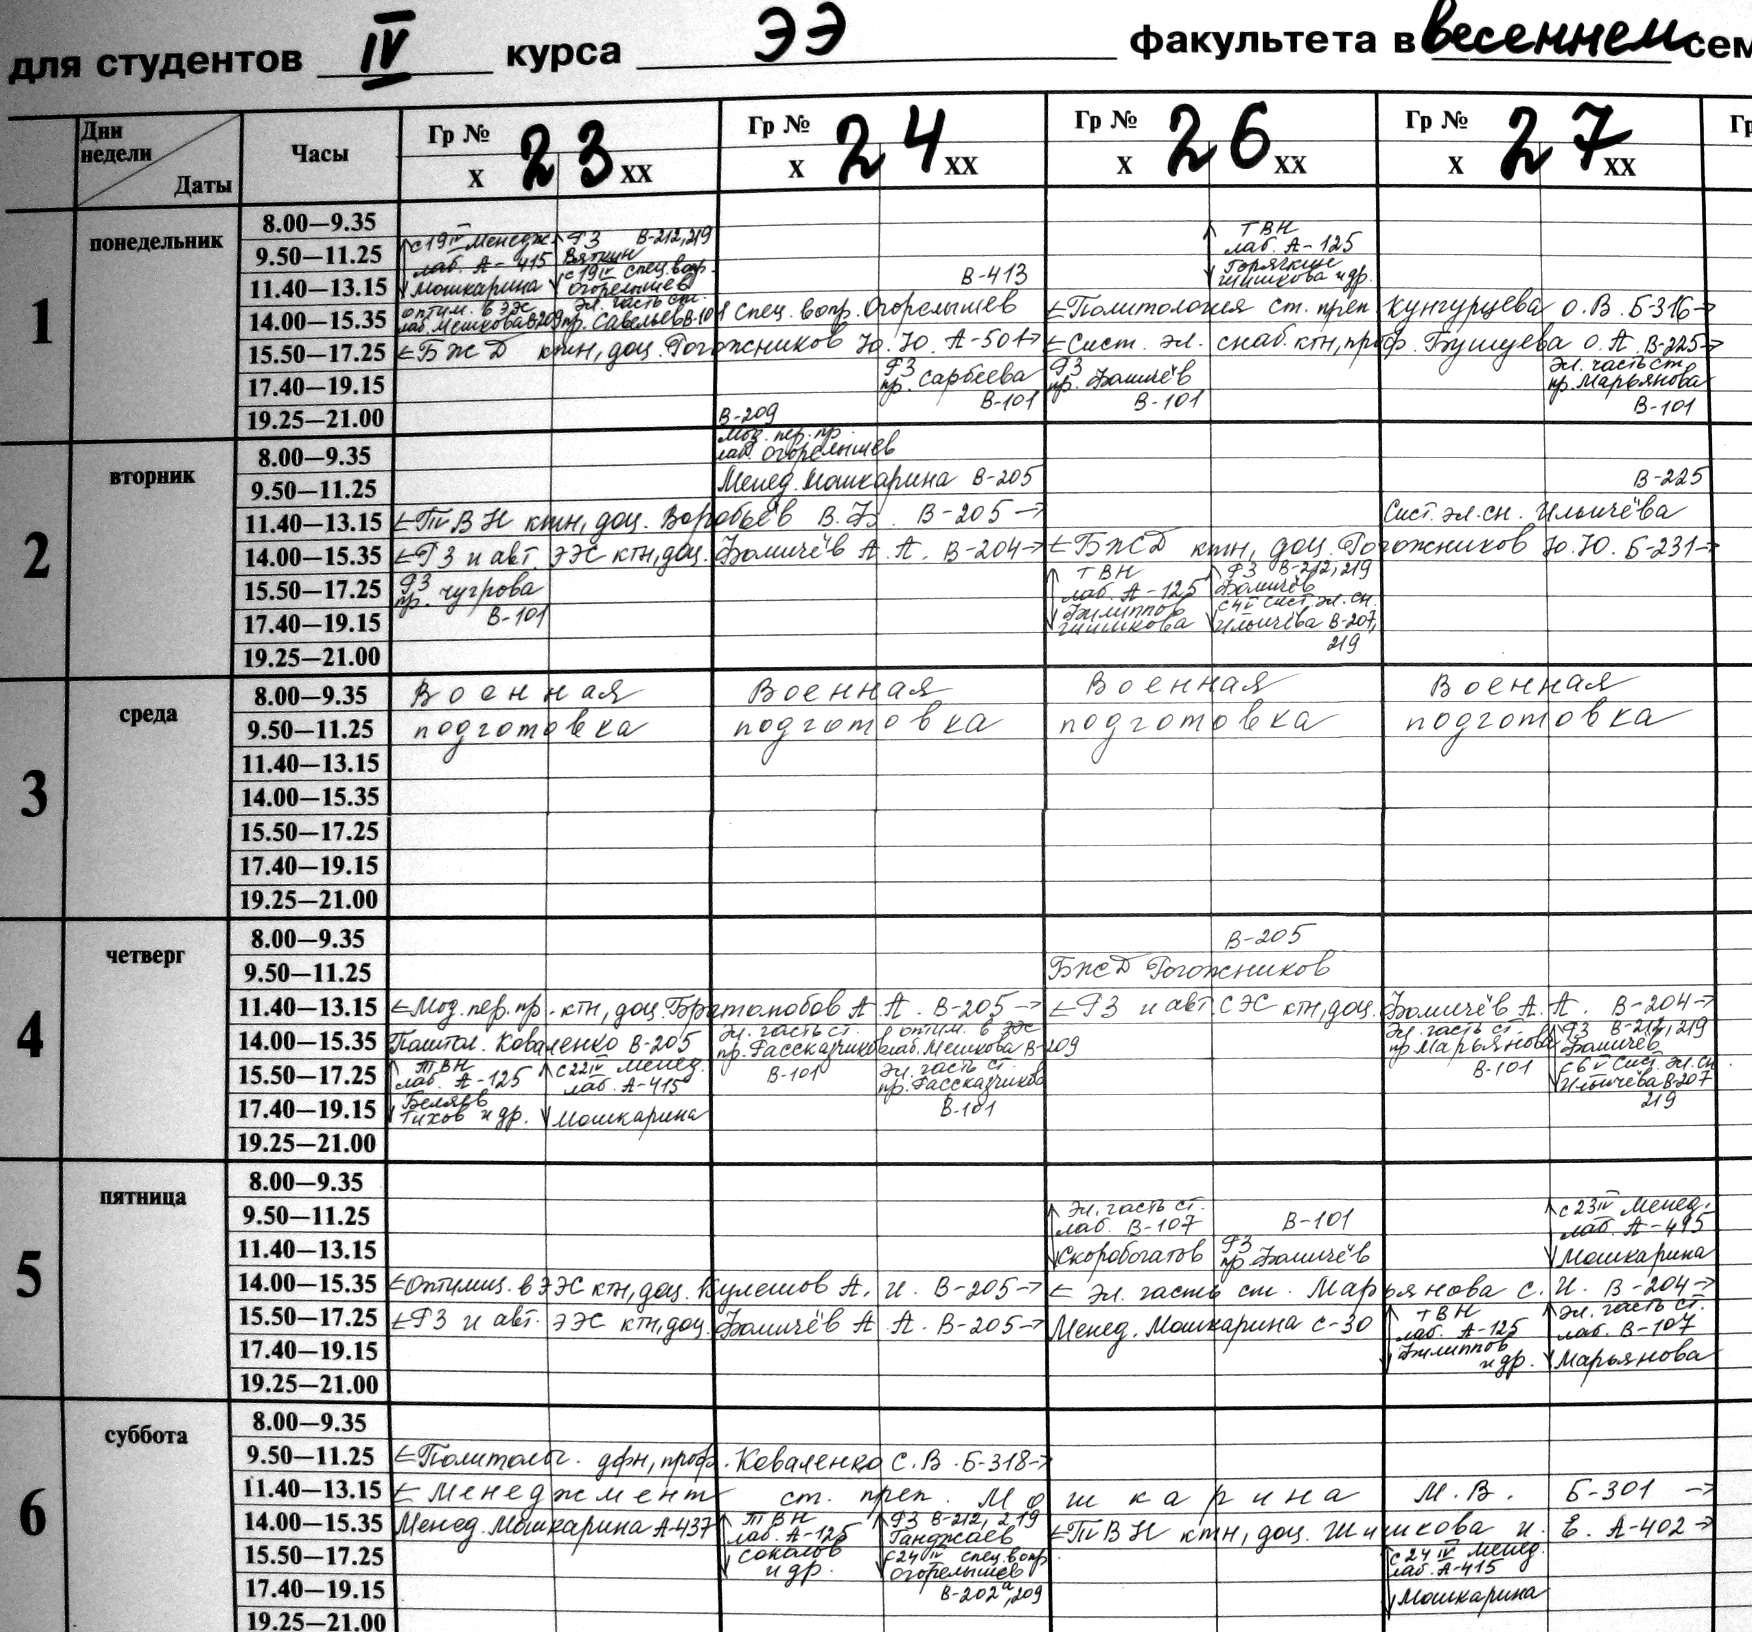 для студентов IV курса ЭЭ факультета в весеннем сем
Дни недели Даты Часы Гр № 23 Гр № 24 Гр № 26 Гр № 27 Гр
х хх х хх х хх х хх
1 понедельник
8.00—9.35
с 19 IV Менедж. РЗ В-212,219 ТВН
9.50—11.25
лаб. А-415 Вяткин лаб. А-125
с 19 IV спец. вопр. В-413 Горячкин
11.40—13.15
Мошкарина Огорелышев Шишкова и др.
оптим. в ЭЭС Эл. часть ст.
14.00—15.35
лаб. Мешкова В-209 пр. Савельев В-101 Спец. вопр. Огорелышев ←Политология ст. преп. Кунгурцева О.В. Б-316→
15.50—17.25 ←БЖД ктн, доц. Рогожников Ю.Ю. А-501→ ←Сист. эл. снаб. ктн, проф. Бушуева О.А. В-225→
17.40—19.15 РЗ пр. Сарбеева РЗ пр. Фомичёв Эл. часть ст. пр. Марьянова
19.25—21.00 В-101 В-101 В-101
В-209
2 вторник
8.00—9.35 Моз. пер. пр. лаб. Огорелышев
9.50—11.25 Менед. Мошкарина В-205 В-225
11.40—13.15 ←ТВН ктн, доц. Воробьёв В.Ф. В-205→ Сист. эл. сн. Ильичёва
14.00—15.35 ←РЗ и авт. ЭЭС ктн, доц. Фомичёв А.А. В-204→ ←БЖД ктн, доц. Рогожников Ю.Ю. Б-231→
15.50—17.25 РЗ пр. Чугрова ТВН лаб. А-125 РЗ В-212,219 Фомичёв
17.40—19.15 В-101 Филиппов Шишкова Сист. эл. сн. Ильичёва В-207,
19.25—21.00 219
3 среда
8.00—9.35 Военная Военная Военная Военная
9.50—11.25 подготовка подготовка подготовка подготовка
11.40—13.15
14.00—15.35
15.50—17.25
17.40—19.15
19.25—21.00
4 четверг
8.00—9.35 В-205
9.50—11.25 БЖД Рогожников
11.40—13.15 ←Моз. пер. пр. ктн, доц. Братолюбов А.А. В-205→ ←РЗ и авт. СЭС ктн, доц. Фомичёв А.А. В-204→
14.00—15.35 Политол. Коваленко В-205 Эл. часть ст. пр. Рассказчиков оптим. в ЭЭС лаб. Мешкова В-209 Эл. часть ст. пр. Марьянова РЗ В-212,219 Фомичёв
15.50—17.25 ТВН лаб. А-125 с 22 IV менед. лаб. А-415 В-101 Эл. часть ст. пр. Рассказчиков В-101 Сист. эл. сн. Ильичёва В-207
17.40—19.15 Беляев Тихов и др. Мошкарина В-101 219
19.25—21.00
5 пятница
8.00—9.35
9.50—11.25 Эл. часть ст. лаб. В-107 В-101 с 23 IV Менед. лаб. А-415
11.40—13.15 Скоробогатов РЗ пр. Фомичёв Мошкарина
14.00—15.35 ←Оптимиз. в ЭЭС ктн, доц. Кулешов А.И. В-205→ ← Эл. часть ст. Марьянова С.И. В-204→
15.50—17.25 ←РЗ и авт. ЭЭС ктн, доц. Фомичёв А.А. В-205→ Менед. Мошкарина С-30 ТВН лаб. А-125 Эл. часть ст. лаб. В-107
17.40—19.15 Филиппов и др. Марьянова
19.25—21.00
6 суббота
8.00—9.35
9.50—11.25 ←Политолог. дфн, проф. Коваленко С.В. Б-318→
11.40—13.15 ←Менеджмент ст. преп. Мошкарина М.В. Б-301→
14.00—15.35 Менед. Мошкарина А-437 ТВН лаб. А-125 РЗ В-212,219 Ганджаев ←ТВН ктн, доц. Шишкова И.Е. А-402→
15.50—17.25 Соколов и др. с 24 IV спец. вопр. Огорелышев с 24 IV менед. лаб. А-415
17.40—19.15 В-202а,209 Мошкарина
19.25—21.00